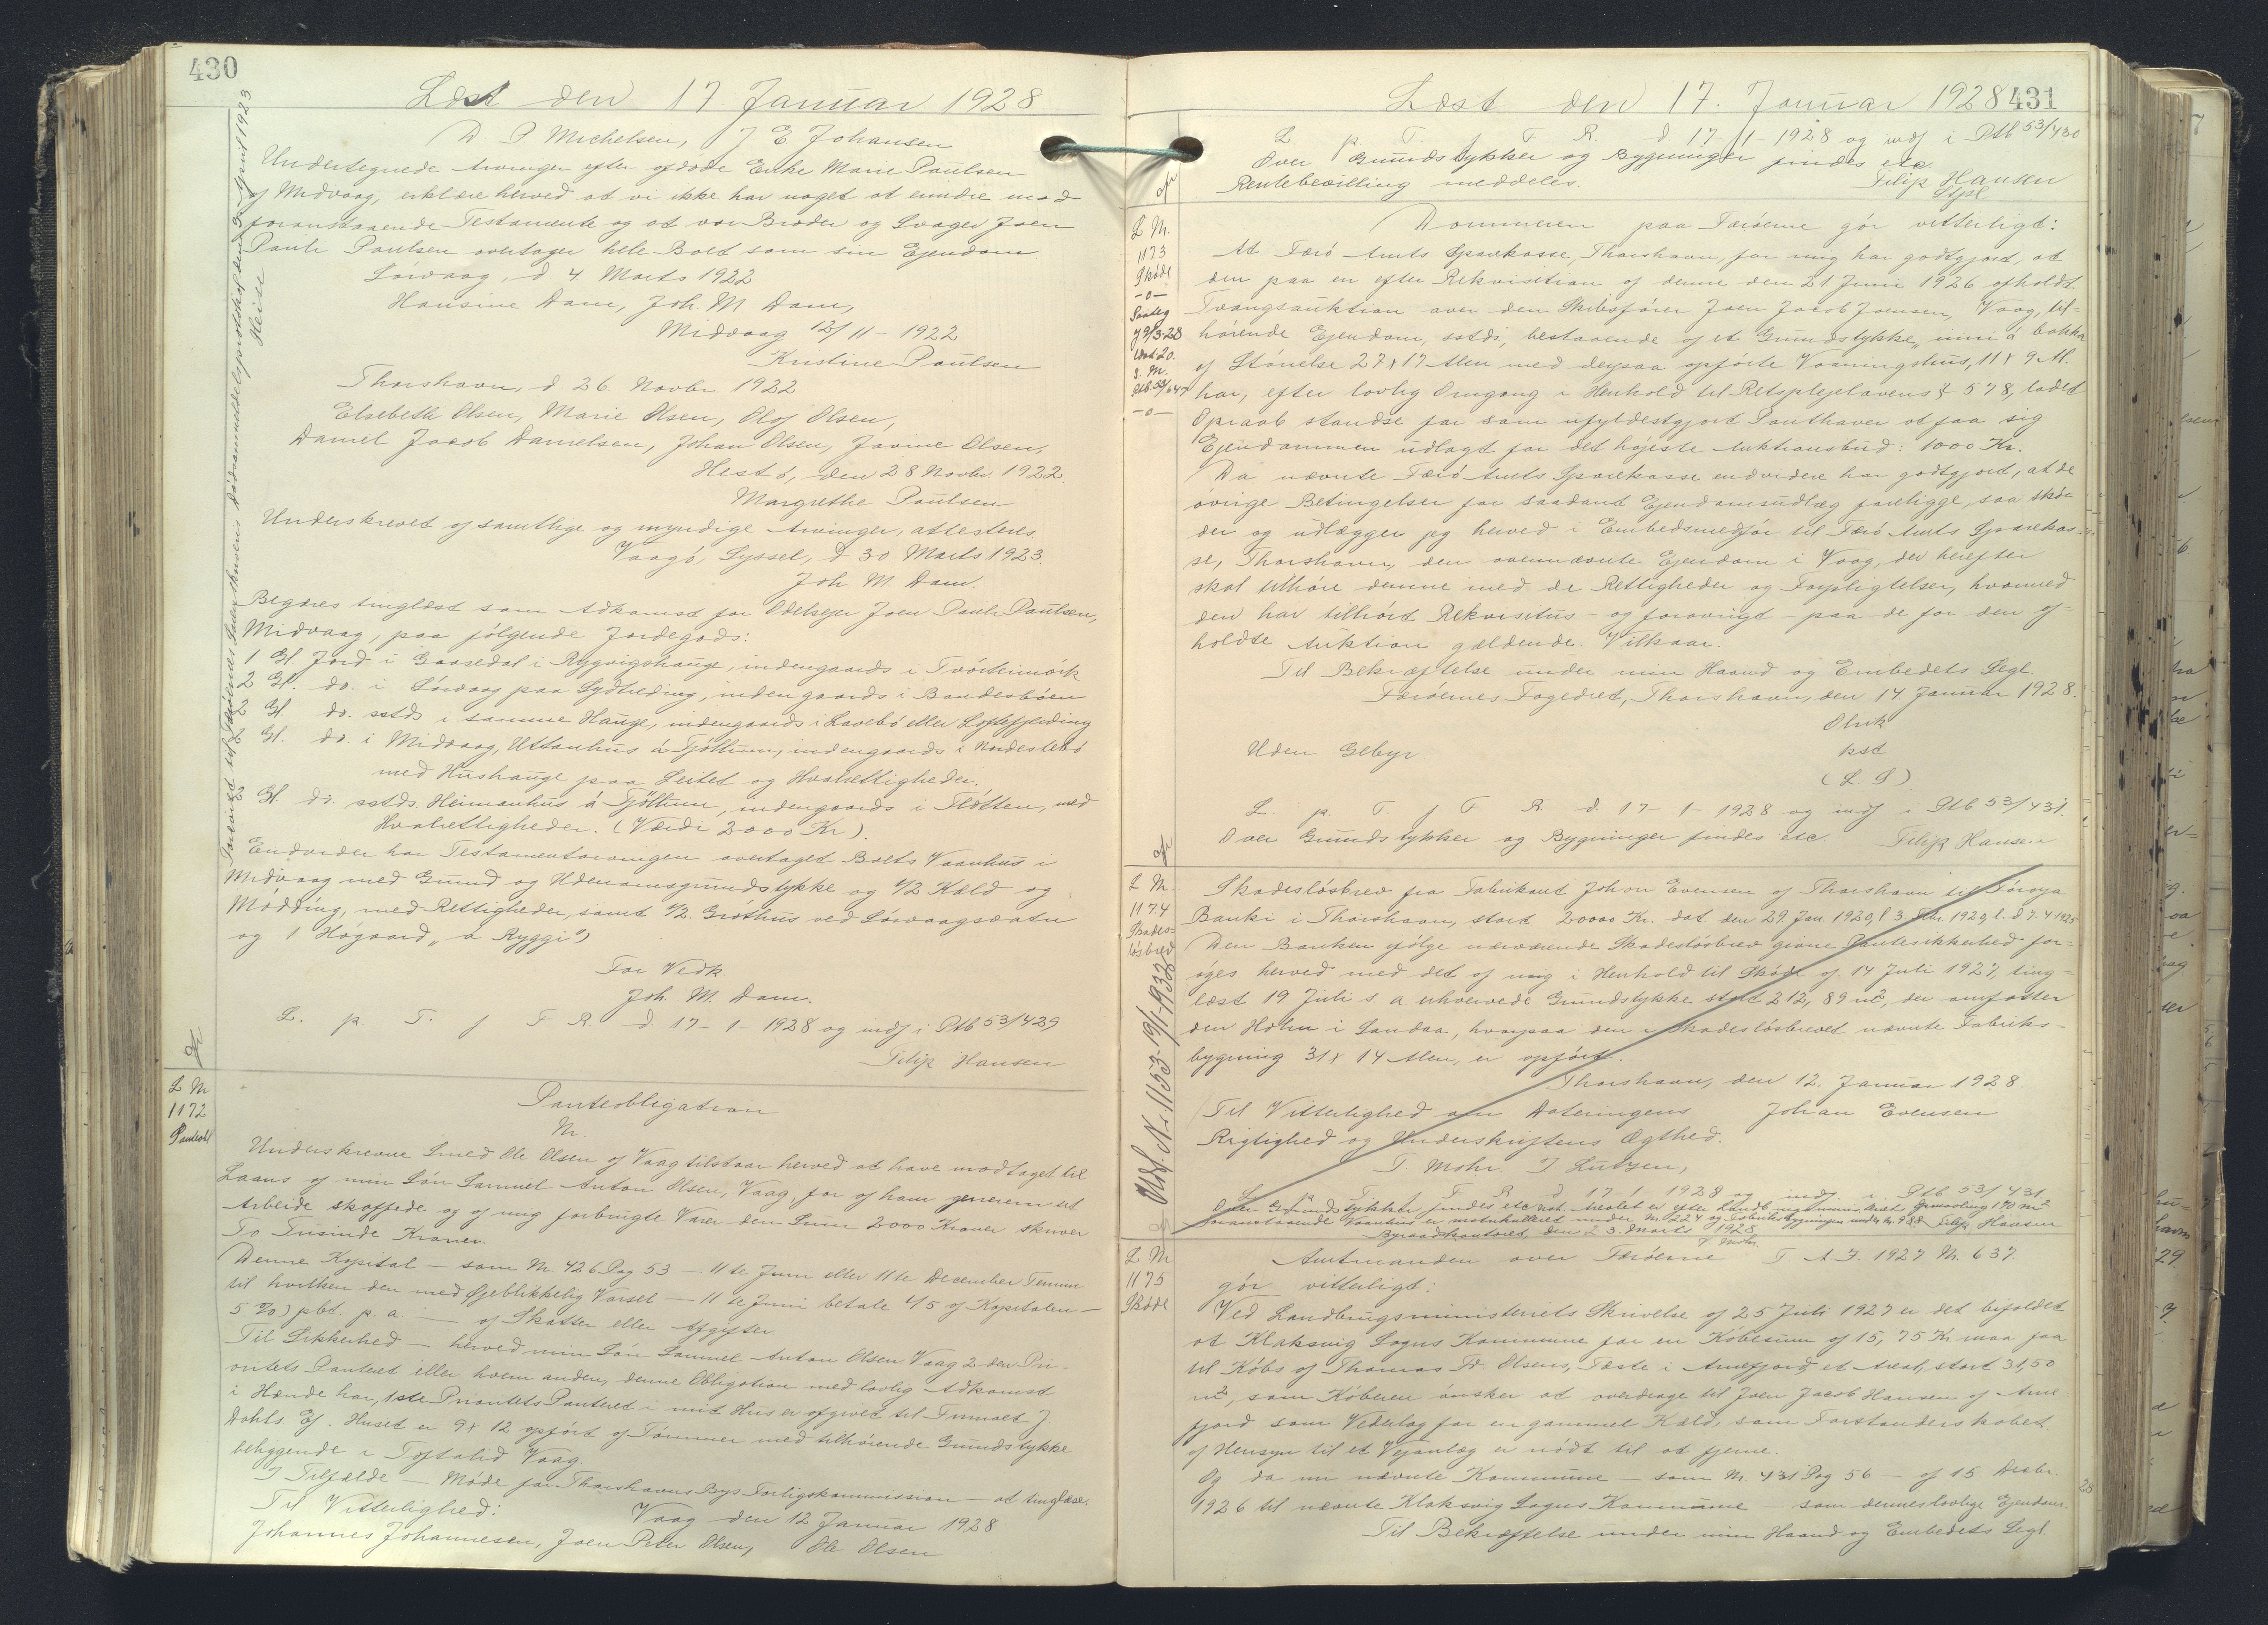 430
Læst den 17 Januar 1928
D P Michelsen, J E Johansen
Undertegnede Arvinger efter afdøde Enke Marie Paulsen
af Midvaag, erklære herved at vi ikke har noget at erindre mod
foranstaaende Testamente og at vor Broder og Svager Joen
Pauli Paulsen overtager hele Boet som sin Ejendom
Sørvaag, d 4 Marts 1922
Hansine Dam, Joh M Dam,
Midvaag 12/11 - 1922
Kristine Paulsen
Thorshavn, d. 26 Novbr 1922
Elsebeth Olsen, Marie Olsen, Olof Olsen,
Daniel Jacob Danielsen, Johan Olsen, Olsen,
Hestø, den 28 Novbr 1922.
Margrethe Paulsen
Underskrevet af samtlige og myndige Arvinger, attesteres.
Vaagø, Syssel, d 30 Marts 1923.
Joh M. Dam.
Begæres tinglæst som Adkomst for Odelsejer Joen Pauli Paulsen,
Midvaag, paa følgende Jordegods:
1 Gl. Jord i Gaasedal i Rygvigshauge, indengaards i
2 Gl. do. i Sørvaag paa Sydtreding, indengaards i Bondesbøen
2 Gl. do. sstds i samme Hauge, indengaards i Lavebø eller Loftefjerding
2 Gl. do. i Midvaag, Uttanhus a Tjøttum, indengaards i Nordestebø
med Hushauge paa Leitet og Hvalrettigheder.
2 Gl. do. sstds. Heimanhus á Tjøttum, indengaards i Fløtten, med
Hvalrettigheder. (Værdi 2000 Kr).
Endvider har Testamentarvingen overtaget Boets Vaanhus i
Midvaag med Grund og Udenomsgrundstykke og 1/2 Kæld og
Mødding, med Rettigheder, samt 1/2 Gróthus ved Sørvaagsvatn
og 1 Høgaard „a Ryggi“)
For Vedk.
Joh. M. Dam.
L. p. T. f F R. d. 17-1-1928 og indf i Ptb 53/429
Filip Hansen
Heise
L Nr
1172
Panteobl
Panteobligation
Nr.
Underskrevne Smed Ole Olsen af Vaag tilstaar herved at have modtaget til
Laans af min Søn Samuel Anton Olsen, Vaag, for af ham gennem sit
Arbeide skaffede og af mig forbrugte Varer den Sum 2000 Kroner skriver
To Tusinde Kroner.
Denne Kapital - som Nr 426 Pag 53 - 11te Juni eller 11te December Termin
til hvilken den med Øjeblikkelig Varsel - 11te Juni betale 1/5 af Kapitalen -
5 %) pct p. a. - af Skatter eller Afgifter.
Til Sikkerhed - herved min Søn Samuel Anton Olsen Vaag 2den Pri-
oritets Panteret eller hvem anden, denne Obligation med lovlig Adkomst
i Hænde har, 1ste Prioritets Panteret i mit Hus er afgivet til J.
Dahls Ef. Huset er 9 x 12 opført af Tømmer med tilhørende Grundstykke
beliggende i Vaag.
I Tilfælde - Møde for Thorshavns Bys Forligskommission - at tinglæse.
Til Vitterlighed: Vaag den 12 Januar 1928
Johannes Johannesen, Joen Peter Olsen, Ole Olsen
431
Læst den 17. Januar 1928
L p T. f F R. d 17-1-1928 og indf i Ptb 53/430
Over Grundstykker og Bygninger findes etc
Rentebevilling meddeles. Filip Hansen
L Nr.
1173
Skøde
-o-
Dommeren paa Færøerne gør vitterligt:
At Færø Amts Sparekasse, Thorshavn, for mig har godtgjort, at
den paa en efter Rekvisition af denne den 21 Juni 1926 afholdt
Tvangsauktion over den Skibsfører Joen Jacob Joensen, Vaag, til-
hørende Ejendom, sstds, bestaaende af et Grundstykke „inni á bakka
af Størrelse 27 x 17 Alen med derpaa opførte Vaaningshus, 11 x 9 Al.
har, efter lovlig Omgang i Henhold til Retsplejelovens § 578, ladet
Opraab standse for som ufyldestgjort Panthaver at faa sig
Ejendommen udlagt for det højeste Auktionsbud: 1000 Kr.
Da nævnte Færø Amts Sparekasse endvidere har godtgjort, at de
øvrige Betingelser for saadant Ejendomsudlæg foreligge, saa skø-
der og udlægger jeg herved i Embedsmedfør til Færø Amts Sparekas-
se, Thorshavn, den ovennævnte Ejendom i Vaag, der herefter
skal tilhøre denne med de Rettigheder og Forpligtelser, hvormed
den har tilhørt Rekvisitus - og forøvrigt - paa de for den af-
holdte Auktion gældende Vilkaar.
Til Bekræftelse under min Haand og Embedets Segl.
Færøernes Fogedret, Thorshavn, den 14 Januar 1928.
Uden Gebyr
kst
(L. S)
L. p. T. f F R. d. 17-1-1928 og indf i Ptb 53/431.
Over Grundstykker og Bygninger findes etc. Filip Hansen
L Nr.
1174
Skades-
løsbrev
Udsl. Nr 1153-19/1-1932
Skadesløsbrev fra Fabrikant Johan Evensen af Thorshavn til Føroya
Banki i Thorshavn, stort 20000 Kr. dat. den 29. Jan. 1920, l 3 Febr. 1920, l. d 7.4 1925
Den Banken ifølge nærværende Skadesløsbrev givne Pantesikkerhed for-
øges herved med det af mig i Henhold til Skøde af 14 Juli 1927, ting-
læst 19 Juli s. a. erhvervede Grundstykke stort 212,89 m², der omfatter
den Høhn i Sandaa, hvorpaa den i Skadesløsbrevet nævnte Fabriks-
bygning 31 x 14 Alen, er opført.
Thorshavn, den 12. Januar 1928.
Til Vitterlighed om Dateringens Johan Evensen
Rigtighed og Underskriftens Ægthed.
T Mohr. J Lützen,
L p T. f F R d 17-1-1928 og indf. i Ptb 53/431
Over Grundstykker findes etc
foranstaaende Vaanhus er matrikuleret under Nr 224 og Fabriksbygningen under Nr. 988 Filip Hansen
Byraadkontoret, den 23. Marts 1928
T Mohr.
L Nr
1175
Skøde
Amtmanden over Færøerne F. A. J. 1927 Nr. 637.
gør vitterligt:
Ved Landbrugsministeriets Skrivelse af 25 Juli 1927 er det bifaldet
at Klaksvig Sogns Kommune for en Købesum af 15,75 Kr maa faa
til Købs af Thomas Fr. Olsens Fæste i Arnefjord, et Areal, stort 31,50
m², som Køberen ønsker at overdrage til Joen Jacob Hansen af Arne-
fjord som Vederlag for en gammel Kæld, som Forstanderskabet
af Hensyn til et Vejanlæg er nødt til at fjerne.
Og da nu nævnte Kommune - som Nr. 431 Pag 56 - af 15 Decbr.
1926 til nævnte Klaksvig Sogns Kommune som dennes lovlige Ejendom.
Til Bekræftelse under min Haand og Embedets Segl.